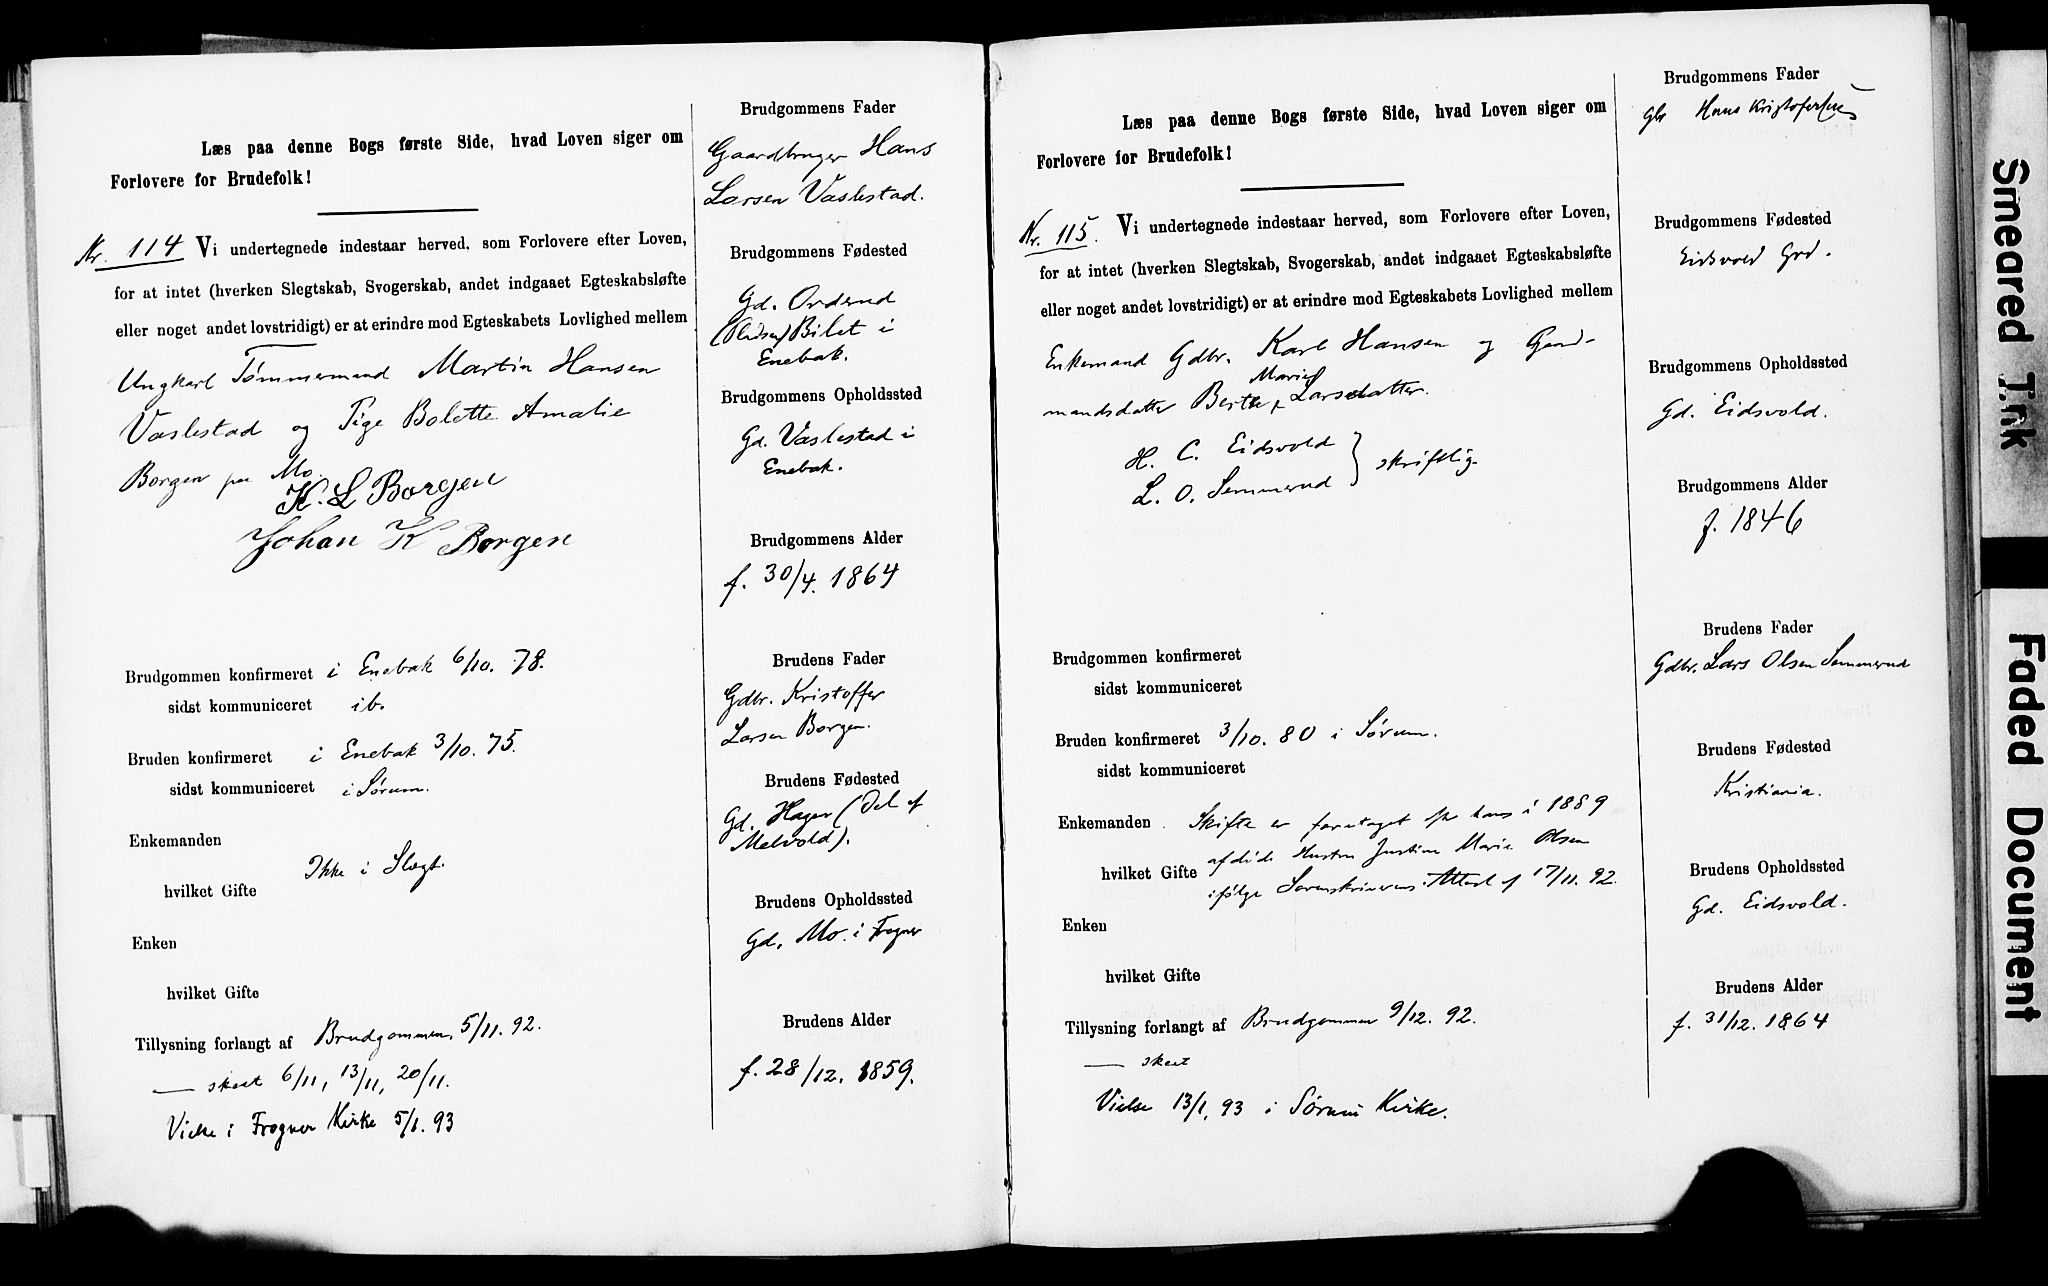 Læs paa denne Bogs første Side, hvad Loven siger om
Forlovere for Brudefolk!
Nr. 114 Vi undertegnede indestaar herved, som Forlovere efter Loven,
for at intet (hverken Slegtskab, Svogerskab, andet indgaaet Egteskabsløfte
eller noget andet lovstridigt) er at erindre mod Egteskabets Lovlighed mellem
Ungkarl Tømmermand Martin Hansen
Vaslestad og Pige Bolette Amalie
Borgen paa Mo.
K. L Borgen
Johan K Borgen
Brudgommen konfirmeret i Enebak 6/10. 78.
sidst kommuniceret ib.
Bruden konfirmeret i Enebak 3/10. 75.
sidst kommuniceret i Sørum.
Enkemanden
Ikke i Slægt.
hvilket Gifte
Enken
hvilket Gifte
Tillysning forlangt af Brudgommen 5/11. 92.
— skeet 6/11, 13/11, 20/11.
Vielse i Frogner Kirke 5/1. 93
Brudgommens Fader
Gaardbruger Hans
Larsen Vaslestad.
Brudgommens Fødested
Gd. Orderud
Bilet i
Enebak.
Brudgommens Opholdssted
Gd. Vaslestad i
Enebak.
Brudgommens Alder
f. 30/4. 1864
Brudens Fader
Gdbr. Kristoffer
Larsen Borgen.
Brudens Fødested
Gd. Hager (Del af
Melvold).
Brudens Opholdssted
Gd. Mo i Frogner
Brudens Alder
f. 28/12. 1859.
Læs paa denne Bogs første Side, hvad Loven siger om
Forlovere for Brudefolk!
Nr. 115. Vi undertegnede indestaar herved, som Forlovere efter Loven,
for at intet (hverken Slegtskab, Svogerskab, andet indgaaet Egteskabsløfte
eller noget andet lovstridigt) er at erindre mod Egteskabets Lovlighed mellem
Enkemand Gdbr. Karl Hansen og Gaard-
Marie
mandsdatter Berthe Larsdatter.
H. C. Eidsvold
skriftlig.
L. O. Semmerud
Brudgommen konfirmeret
sidst kommuniceret
Bruden konfirmeret 3/10. 80 i Sørum.
sidst kommuniceret
Enkemanden Skifte er foretaget efter hans i 1889
afdøde Hustru Justine Marie Olsen
hvilket Gifte ifølge Sorenskriverens Attest af 17/11. 92.
Enken
hvilket Gifte
Tillysning forlangt af Brudgommen 9/12. 92.
— skeet
Vielse 13/1. 93 i Sørum Kirke.
Brudgommens Fader
Gbr Hans Kristofersen
Brudgommens Fødested
Eidsvold Grd.
Brudgommens Opholdssted
Gd. Eidsvold.
Brudgommens Alder
f. 1846
Brudens Fader
Gdbr. Lars Olsen Semmerud
Brudens Fødested
Kristiania.
Brudens Opholdssted
Gd. Eidsvold.
Brudens Alder
f. 31/12. 1864
Smeared Ink
Faded Document